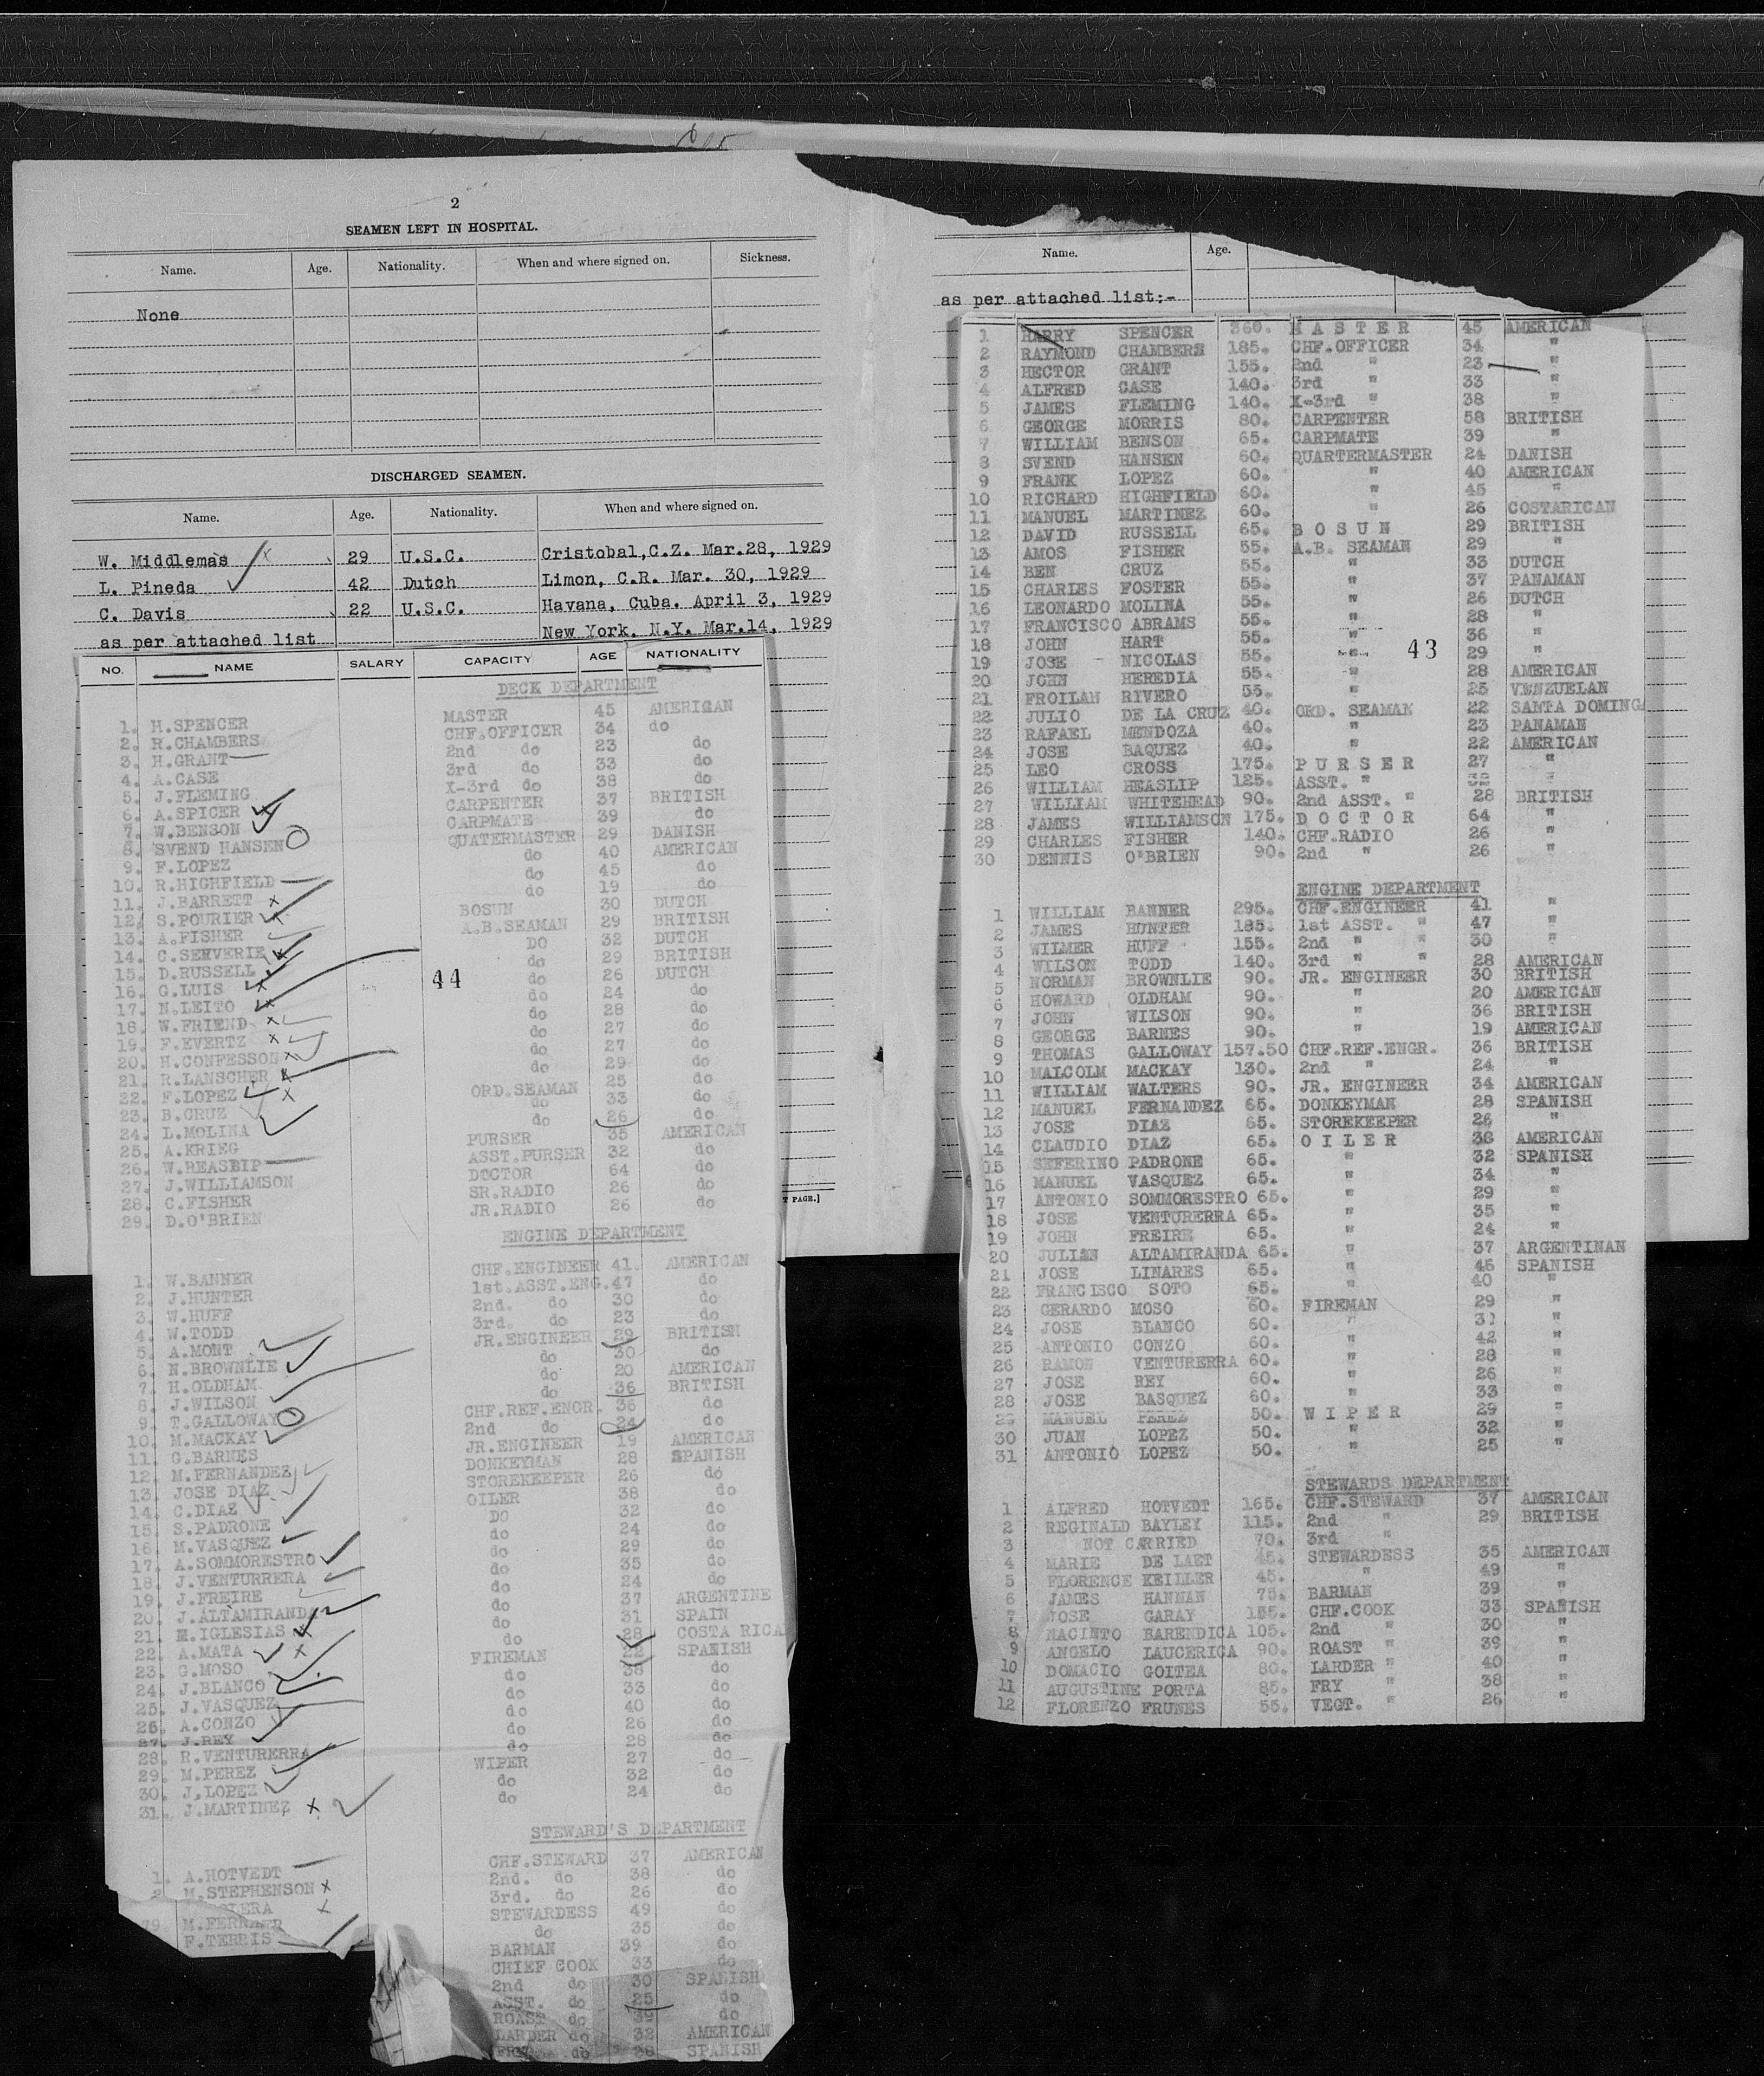 2
SEAMEN LEFT IN HOSPITAL.
Name. Age. Nationality. When and where signed on. Sickness.
None
DISCHARGED SEAMEN.
Name. Age. Nationality. When and where signed on.
W. Middlemas 29 U.S.C. Cristobal,C.Z. Mar.28, 1929
L. Pineda 42 Dutch Limon, C.R. Mar. 30, 1929
C. Davis 22 U.S.C. Havana, Cuba. April 3, 1929
as per attached list New York. N.Y. Mar.14, 1929
NO. NAME SALARY CAPACITY AGE NATIONALITY
DECK DEPARTMENT
1. H.SPENCER MASTER 45 AMERICAN
2. R.CHAMBERS CHF.OFFICER 34 do
3. H.GRANT 2nd do 23 do
4. A.CASE 3rd do 33 do
5. J.FLEMING X-3rd do 38 do
6. A.SPICER CARPENTER 37 BRITISH
7. W.BENSON CARPMATE 39 do
8. SVEND HANSEN QUATERMASTER 29 DANISH
9. F.LOPEZ do 40 AMERICAN
10. R.HIGHFIELD do 45 do
11. J.BARRETT do 19 do
12. S.POURIER BOSUN 30 DUTCH
13. A.FISHER A.B.SEAMAN 29 BRITISH
14. C.SERVERIE DO 32 DUTCH
15. D.RUSSELL do 29 BRITISH
16. G.LUIS do 26 DUTCH
44
17. N.LEITO do 24 do
18. W.FRIEND do 28 do
19. F.EVERTZ do 27 do
20. H.CONFESSON do 27 do
21. R.LANSCHER do 29 do
22. F.LOPEZ ORD.SEAMAN 25 do
23. B.CRUZ do 33 do
24. L.MOLINA do 26 do
25. A.KRIEG PURSER 35 AMERICAN
26. W.HEASLIP ASST.PURSER 32 do
27. J.WILLIAMSON DOCTOR 64 do
28. C.FISHER SR.RADIO 26 do
29. D.O'BRIEN JR.RADIO 26 do
ENGINE DEPARTMENT
1. W.BANNER CHF.ENGINEER 41. AMERICAN
2. J.HUNTER 1st.ASST.ENG. 47 do
3. W.HUFF 2nd. do 30 do
4. W.TODD 3rd. do 23 do
5. A.MONT JR.ENGINEER 29 BRITISH
6. N.BROWNLIE do 30 do
7. H.OLDHAM do 20 AMERICAN
8. J.WILSON do 36 BRITISH
9. T.GALLOWAY CHF.REF.ENGR. 36 do
10. M.MACKAY 2nd do 24 do
11. G.BARNES JR.ENGINEER 19 AMERICAN
12. M.FERNANDEZ DONKEYMAN 28 SPANISH
13. JOSE DIAZ STOREKEEPER 26 do
14. C.DIAZ OILER 38 do
15. S.PADRONE DO 32 do
16. M.VASQUEZ do 24 do
17. A.SOMMORESTRO do 29 do
18. J.VENTURRERA do 35 do
19. J.FREIRE do 24 do
20. J.ALTAMIRANDA do 37 ARGENTINE
21. M.IGLESIAS do 31 SPAIN
22. A.MATA do 28 COSTA RICA
23. G.MOSO FIREMAN 22 SPANISH
24. J.BLANCO do 38 do
25. J.VASQUEZ do 33 do
26. A.CONZO do 40 do
27. J.REY do 26 do
28. R.VENTURERRA do 28 do
29. M.PEREZ WIPER 27 do
30. J,LOPEZ do 32 do
31. J.MARTINEZ do 24 do
STEWARD'S DEPARTMENT
1. A.HOTVEDT CHF.STEWARD 37 AMERICAN
M.STEPHENSON 2nd. do 38 do
3rd. do 26 do
STEWARDESS 49 do
F.TERRIS do 35 do
BARMAN 39 do
CHIEF COOK 33 do
2nd do 30 SPANISH
ASST. do 25 do
ROAST do 39 do
LARDER do 32 AMERICAN
do 38 SPANISH
T PAGE.]
Name. Age.
as per attached list:-
1 HARRY SPENCER 360. MASTER 45 AMERICAN
2 RAYMOND CHAMBERS 185. CHF.OFFICER 34 "
3 HECTOR GRANT 155. 2nd " 23 "
4 ALFRED CASE 140. 3rd " 33 "
5 JAMES FLEMING 140. X-3rd " 38 "
6 GEORGE MORRIS 80. CARPENTER 58 BRITISH
7 WILLIAM BENSON 65. CARPMATE 39 "
8 SVEND HANSEN 60. QUARTERMASTER 24 DANISH
9 FRANK LOPEZ 60. " 40 AMERICAN
10 RICHARD HIGHFIELD 60. " 45 "
11 MANUEL MARTINEZ 60. " 26 COSTARICAN
12 DAVID RUSSELL 65. BOSUN 29 BRITISH
13 AMOS FISHER 55. A.B. SEAMAN 29 "
14 BEN CRUZ 55. " 33 DUTCH
15 CHARLES FOSTER 55. " 37 PANAMAN
16 LEONARDO MOLINA 55. " 26 DUTCH
17 FRANCISCO ABRAMS 55. " 28 "
18 JOHN HART 55. " 36 "
43
19 JOSE NICOLAS 55. " 29 "
20 JOHN HEREDIA 55. " 28 AMERICAN
21 FROILAN RIVERO 55. " 25 VENZUELAN
22 JULIO DE LA CRUZ 40. ORD. SEAMAN 22 SANTA DOMING
23 RAFAEL MENDOZA 40. " 23 PANAMAN
24 JOSE BAQUEZ 40. " 22 AMERICAN
25 LEO CROSS 175. PURSER 27 "
26 WILLIAM HEASLIP 125. ASST. " 32 "
27 WILLIAM WHITEHEAD 90. 2nd ASST. " 28 BRITISH
28 JAMES WILLIAMSON 175. DOCTOR 64 "
29 CHARLES FISHER 140. CHF.RADIO 26 "
30 DENNIS O'BRIEN 90. 2nd " 26 "
ENGINE DEPARTMENT
1 WILLIAM BANNER 295. CHF.ENGINEER 41 "
2 JAMES HUNTER 185. 1st ASST. " 47 "
3 WILMER HUFF 155. 2nd " " 30 "
4 WILSON TODD 140. 3rd " " 28 AMERICAN
5 NORMAN BROWNLIE 90. JR. ENGINEER 30 BRITISH
6 HOWARD OLDHAM 90. " 20 AMERICAN
7 JOHN WILSON 90. " 36 BRITISH
8 GEORGE BARNES 90. " 19 AMERICAN
9 THOMAS GALLOWAY 157.50 CHF.REF.ENGR. 36 BRITISH
10 MALCOLM MACKAY 130. 2nd " 24 "
11 WILLIAM WALTERS 90. JR. ENGINEER 34 AMERICAN
12 MANUEL FERNANDEZ 65. DONKEYMAN 28 SPANISH
13 JOSE DIAZ 65. STOREKEEPER 26 "
14 CLAUDIO DIAZ 65. OILER 38 AMERICAN
15 SEFERINO PADRONE 65. " 32 SPANISH
16 MANUEL VASQUEZ 65. " 34 "
17 ANTONIO SOMMORESTRO 65. " 29 "
18 JOSE VENTURERRA 65. " 35 "
19 JOHN FREIRE 65. " 24 "
20 JULIAN ALTAMIRANDA 65. " 37 ARGENTINAN
21 JOSE LINARES 65. " 46 SPANISH
22 FRANCISCO SOTO 65. " 40 "
23 GERARDO MOSO 60. FIREMAN 29 "
24 JOSE BLANCO 60. " 31 "
25 ANTONIO CONZO 60. " 42 "
26 RAMON VENTURERRA 60. " 28 "
27 JOSE REY 60. " 26 "
28 JOSE BASQUEZ 60. " 33 "
29 MANUEL PEREZ 50. WIPER 29 "
30 JUAN LOPEZ 50. " 32 "
31 ANTONIO LOPEZ 50. " 25 "
STEWARDS DEPARTMENT
1 ALFRED HOTVEDT 165. CHF.STEWARD 37 AMERICAN
2 REGINALD BAYLEY 115. 2nd " 29 BRITISH
3 NOT CARRIED 70. 3rd "
4 MARIE DE LAET 45. STEWARDESS 35 AMERICAN
5 FLORENCE KEILLER 45. " 49 "
6 JAMES HANNAN 75. BARMAN 39 "
7 JOSE GARAY 155. CHF.COOK 33 SPANISH
8 NACINTO BARENDICA 105. 2nd " 30 "
9 ANGELO LAUCERICA 90. ROAST " 39 "
10 DOMACIO GOITEA 80. LARDER " 40 "
11 AUGUSTINE PORTA 85. FRY " 38 "
12 FLORENZO FRUNES 55. VEGT. " 26 "